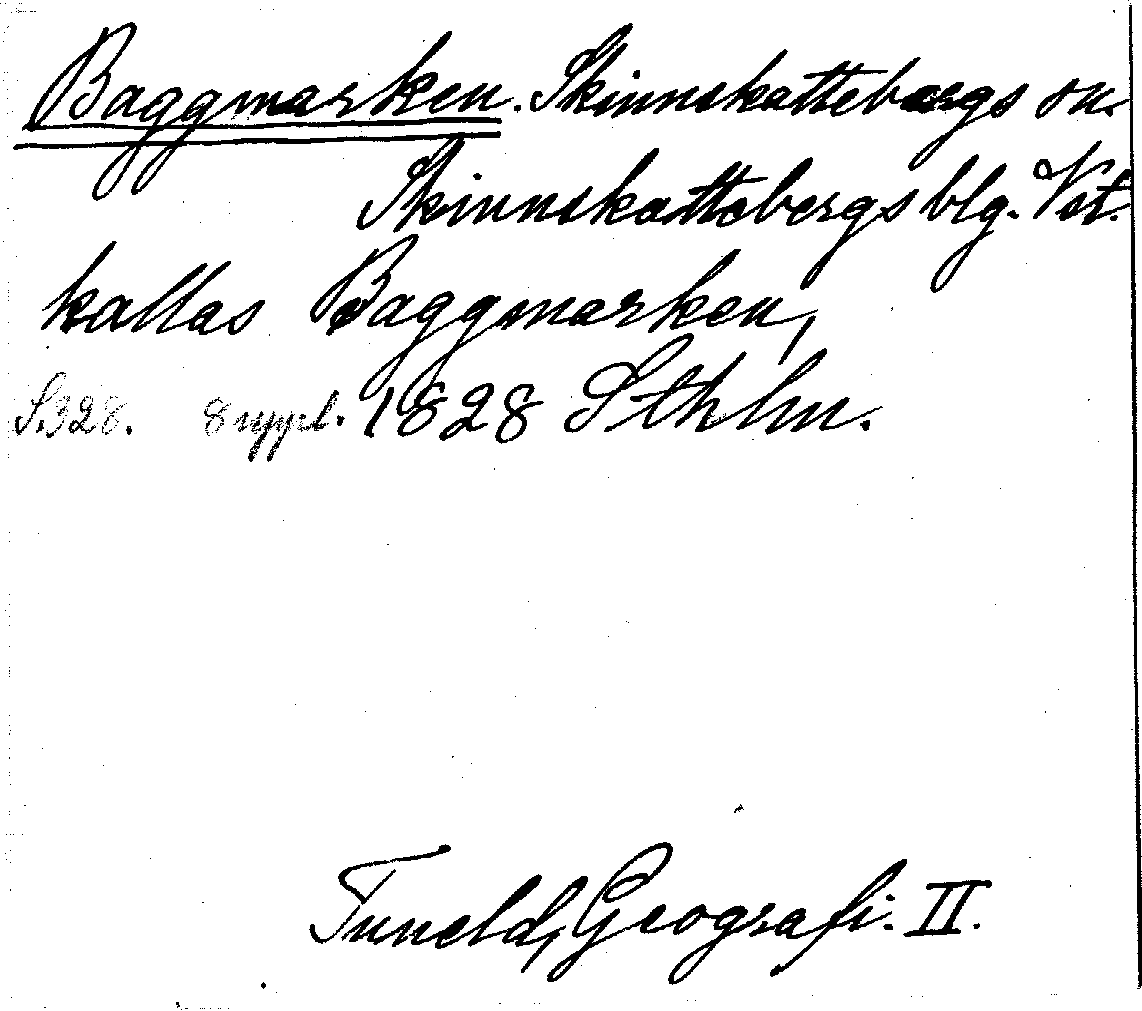 Baggmarken. Skinnskattebergs sn.
Skinnskattebergs blg. Vst.
kallas Baggmarken,
S.328. 8 uppl. 1828 Sthlm.
Tuneld, Geografi. II.